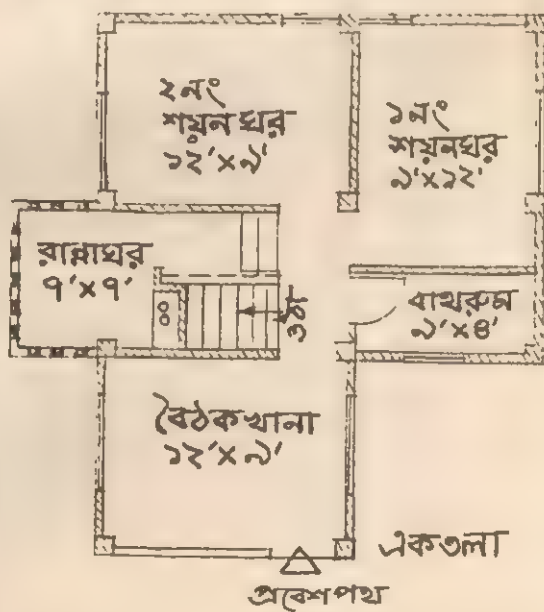 ২নং
শয়নঘর
১২'×৯'
১নং
শয়নঘর
৯'×১২'
রান্নাঘর
৭'×৭'
ওঠা
বাথরুম
৯'×৪'
বৈঠকখানা
১২'×৯'
একতলা
প্রবেশপথ